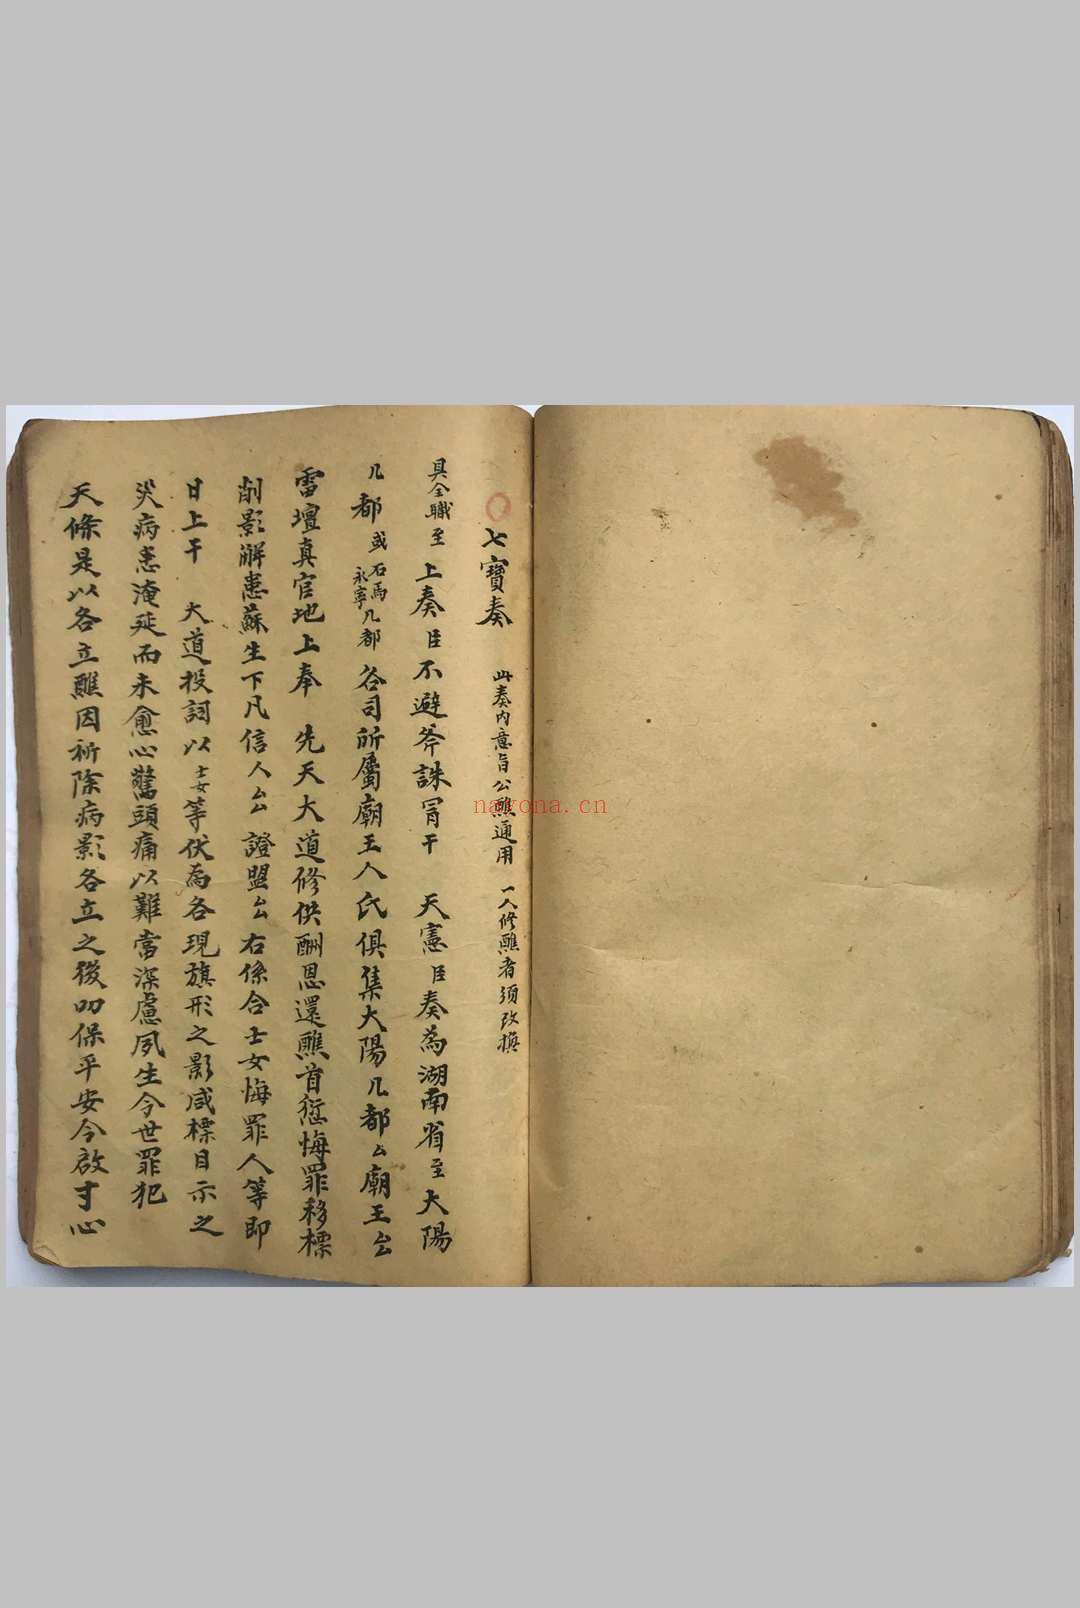 七寶奏 此奏內意旨公醮通用 一人修醮者須改換
具全職至 上奏臣不避斧誅冒干 天憲臣奏為湖南省至大陽
几都或石馬永寧几都 各司所屬廟王人氏俱集大陽几都厶廟王厶厶
雷壇真官地上奉 先天大道修供酬恩還醮首愆悔罪移標
削影瀰患蘇生下凡信人厶厶 證盟厶厶右係合士女悔罪人等即
日上干 大道投詞以士女等伏為各現旗形之影咸標目示之
災病患淹延而未愈心驚頭痛以難當深慮夙生今世罪犯
天條是以各立醮因祈除病影各立之後叩保平安今啟寸心
nayona.cn